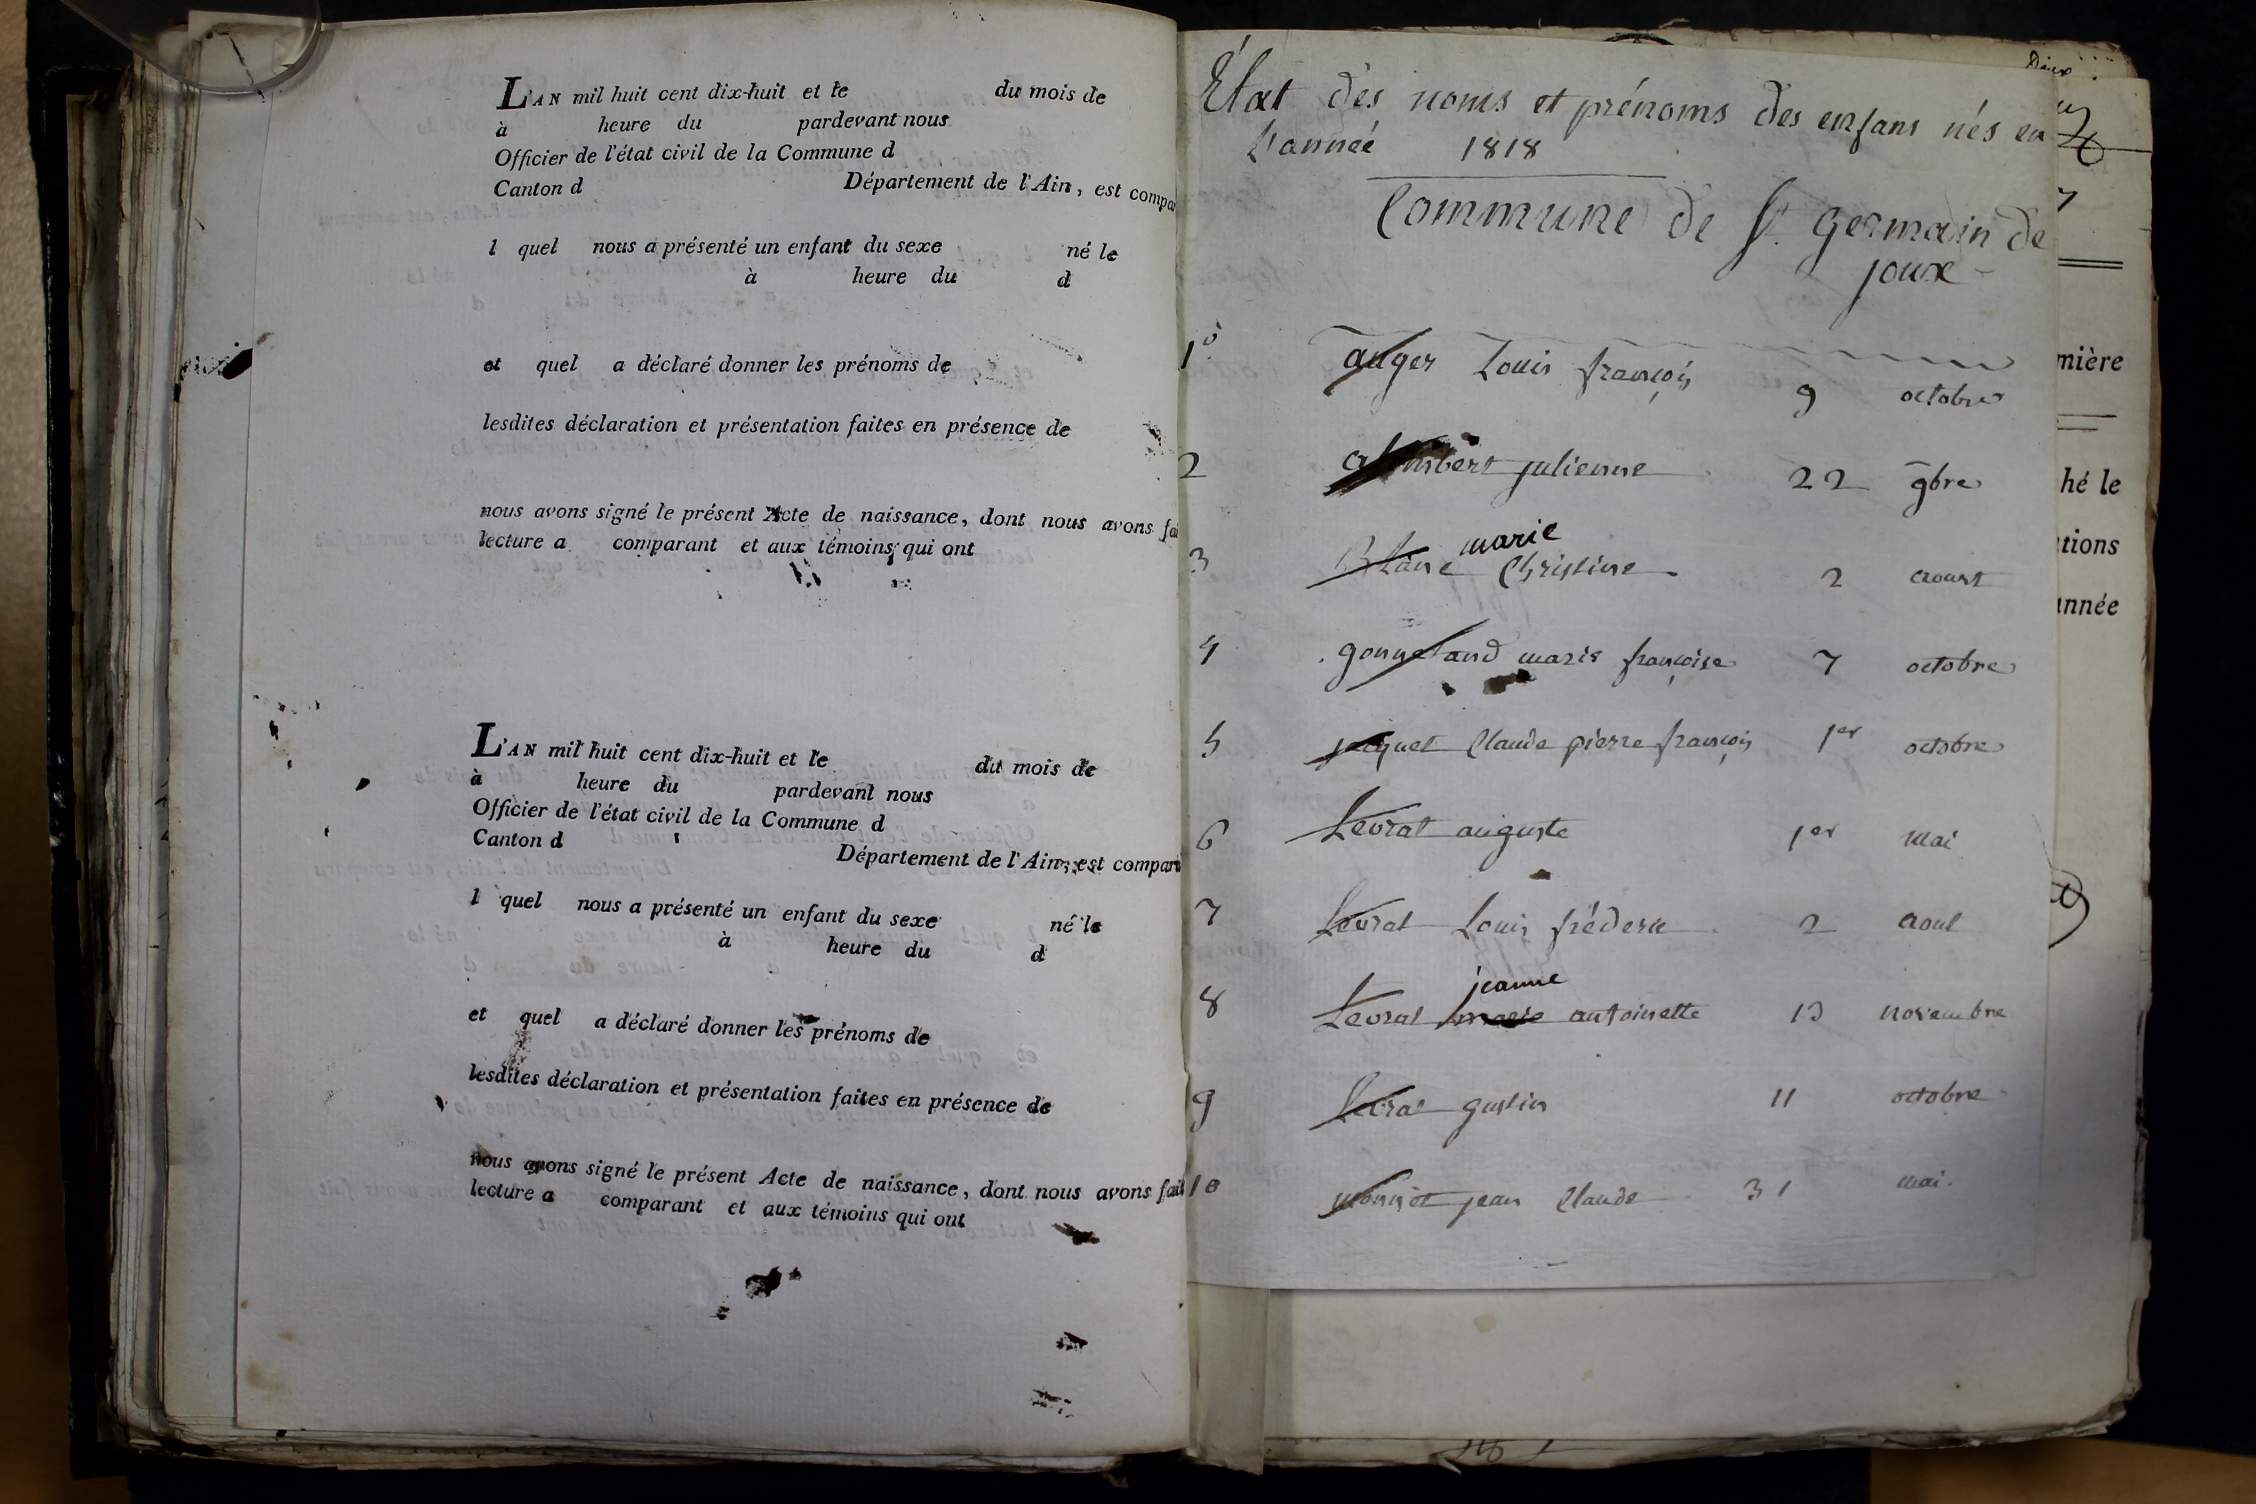 L'AN mil huit cent dix-huit et le du mois de
à heure du pardevant nous
Officier de l'état civil de la Commune d
Canton d Département de l'Ain, est compa
l quel nous a présenté un enfant du sexe né le
à heure du d
et quel a déclaré donner les prénoms de
lesdites déclaration et présentation faites en présence de
nous avons signé le présent Acte de naissance, dont nous avons fai
lecture a comparant et aux témoins qui ont
L'AN mil huit cent dix-huit et le du mois de
à heure du pardevant nous
Officier de l'état civil de la Commune d
Canton d Département de l'Ain, est compar
l quel nous a présenté un enfant du sexe né le
à heure du d
et quel a déclaré donner les prénoms de
lesdites déclaration et présentation faites en présence de
nous avons signé le présent Acte de naissance, dont nous avons fait
lecture a comparant et aux témoins qui ont
État des noms et prénoms des enfans nés en
L'année 1818
Commune de St germain de
joux
1° auger Louis françois 9 octobre
2 julienne 22 9bre
marie
3 Blanc Christine 2 aoust
4 gonneland marie françoise 7 octobre
5 Claude pierre françois 1er octobre
6 Levrat auguste 1er mai
7 Levrat Louis fréderic 2 aout
jeanne
8 Levrat marie antoinette 13 novembre
9 Levrat gustin 11 octobre
10 monnet jean Claude 31 mai
Deux
mière
hé le
tions
année